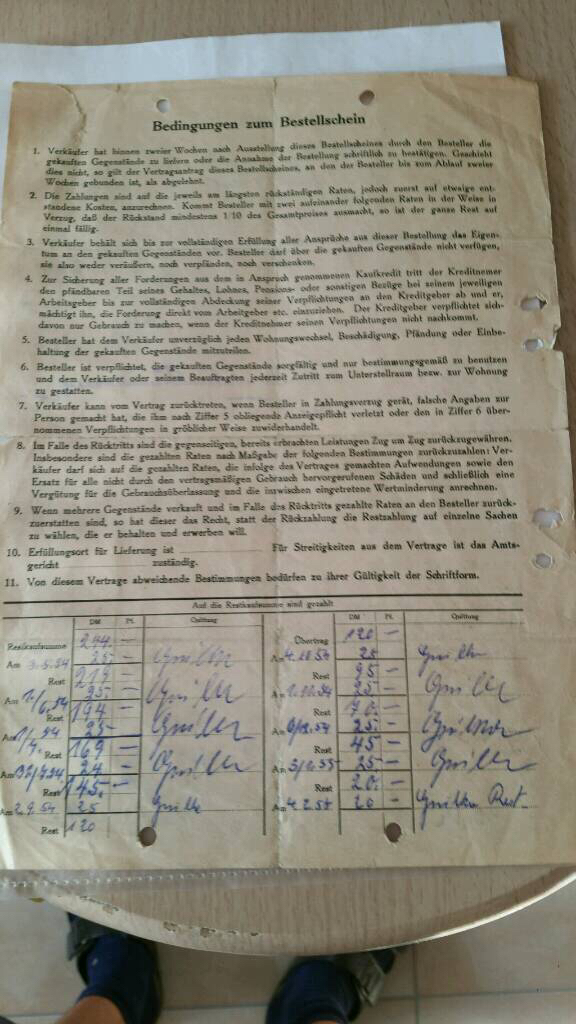 Bedingungen zum Bestellschein
1. Verkäufer hat binnen zweier Wochen nach Ausstellung dieses Bestellscheines durch den Besteller die
gekauften Gegenstände zu liefern oder die Annahme der Bestellung schriftlich zu bestätigen. Geschieht
dies nicht, so gilt der Vertragsantrag dieses Bestellscheines, an den der Besteller bis zum Ablauf zweier
Wochen gebunden ist, als abgelehnt.
2. Die Zahlungen sind auf die jeweils am längsten rückständigen Raten, jedoch zuerst auf etwaige ent-
standene Kosten, anzurechnen. Kommt Besteller mit zwei aufeinander folgenden Raten in der Weise in
Verzug, daß der Rückstand mindestens 1/10 des Gesamtpreises ausmacht, so ist der ganze Rest auf
einmal fällig.
3. Verkäufer behält sich bis zur vollständigen Erfüllung aller Ansprüche aus dieser Bestellung das Eigen-
tum an den gekauften Gegenständen vor. Besteller darf über die gekauften Gegenstände nicht verfügen,
sie also weder veräußern, noch verpfänden, noch verschenken.
4. Zur Sicherung aller Forderungen aus dem in Anspruch genommenen Kaufkredit tritt der Kreditnemer
den pfändbaren Teil seines Gehaltes, Lohnes, Pensions- oder sonstigen Bezüge bei seinem jeweiligen
Arbeitsgeber bis zur vollständigen Abdeckung seiner Verpflichtungen an den Kreditgeber ab und er,
mächtigt ihn, die Forderung direkt vom Arbeitgeber etc. einzuziehen. Der Kreditgeber verpflichtet sich-
davon nur Gebrauch zu machen, wenn der Kreditnehmer seinen Verpflichtungen nicht nachkommt.
5. Besteller hat dem Verkäufer unverzüglich jeden Wohnungswechsel, Beschädigung, Pfändung oder Einbe-
haltung der gekauften Gegenstände mitzuteilen.
6. Besteller ist verpflichtet, die gekauften Gegenstände sorgfältig und nur bestimmungsgemäß zu benutzen
und dem Verkäufer oder seinem Beauftragten jederzeit Zutritt zum Unterstellraum bezw. zur Wohnung
zu gestatten.
7. Verkäufer kann vom Vertrag zurücktreten, wenn Besteller in Zahlungsverzug gerät, falsche Angaben zur
Person gemacht hat, die ihm nach Ziffer 5 obliegende Anzeigepflicht verletzt oder den in Ziffer 6 über-
nommenen Verpflichtungen in gröblicher Weise zuwiderhandelt.
8. Im Falle des Rücktritts sind die gegenseitigen, bereits erbrachten Leistungen Zug um Zug zurückzugewähren.
Insbesondere sind die gezahlten Raten nach Maßgabe der folgenden Bestimmungen zurückzuzahlen: Ver-
käufer darf sich auf die gezahlten Raten, die infolge des Vertrages gemachten Aufwendungen sowie den
Ersatz für alle nicht durch den vertragsmäßigen Gebrauch hervorgerufenen Schäden und schließlich eine
Vergütung für die Gebrauchsüberlassung und die inzwischen eingetretene Wertminderung anrechnen.
9. Wenn mehrere Gegenstände verkauft und im Falle des Rücktritts gezahlte Raten an den Besteller zurück-
zuerstatten sind, so hat dieser das Recht, statt der Rückzahlung die Restzahlung auf einzelne Sachen
zu wählen, die er behalten und erwerben will.
10. Erfüllungsort für Lieferung ist Für Streitigkeiten aus dem Vertrage ist das Amts-
gericht zuständig.
11. Von diesem Vertrage abweichende Bestimmungen bedürfen zu ihrer Gültigkeit der Schriftform.
Auf die Restkaufsumme sind gezahlt
DM Pf. Quittung DM Pf. Quittung
Restkaufsumme 244.— Übertrag 120 —
Am 3.5.54 25.- Am 4.10.54 25
Rest 219 — Rest 95 —
Am 25 — Am 25 —
Rest 194 — Rest 70. —
Am 25 — Am 25. —
Rest 169 — Rest 45 —
Am 24 — Am 25 —
Rest 145. — Rest 20. —
Am 2.9.54 25 Am 4.2.55 20 — Rest
Rest 120